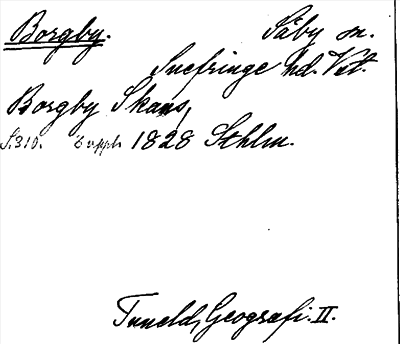 Borgby. Säby sn.
Snefringe hd. Vstl.
Borgby Skans,
S.310. 8 uppl. 1828 Sthlm.
Tuneld, Geografi. II.